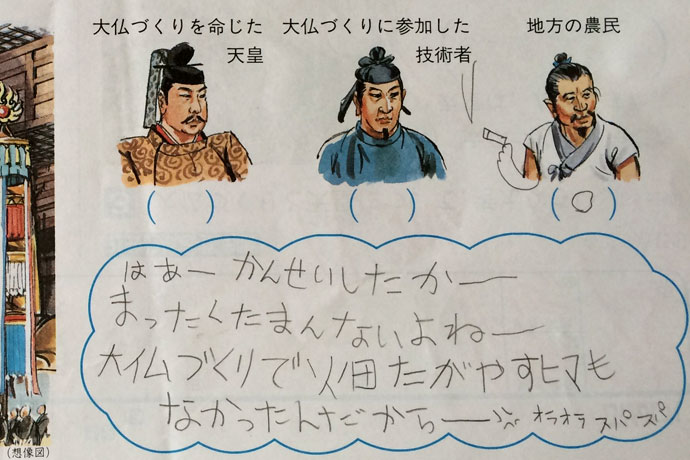 大仏づくりを命じた
天皇
大仏づくりに参加した
技術者
地方の農民
( )
( )
(○)
はぁー かんせいしたかー
まったくたまんないよねー
大仏づくりで畑たがやすヒマも
なかったんだからー オラオラ スパスパ
(想像図)